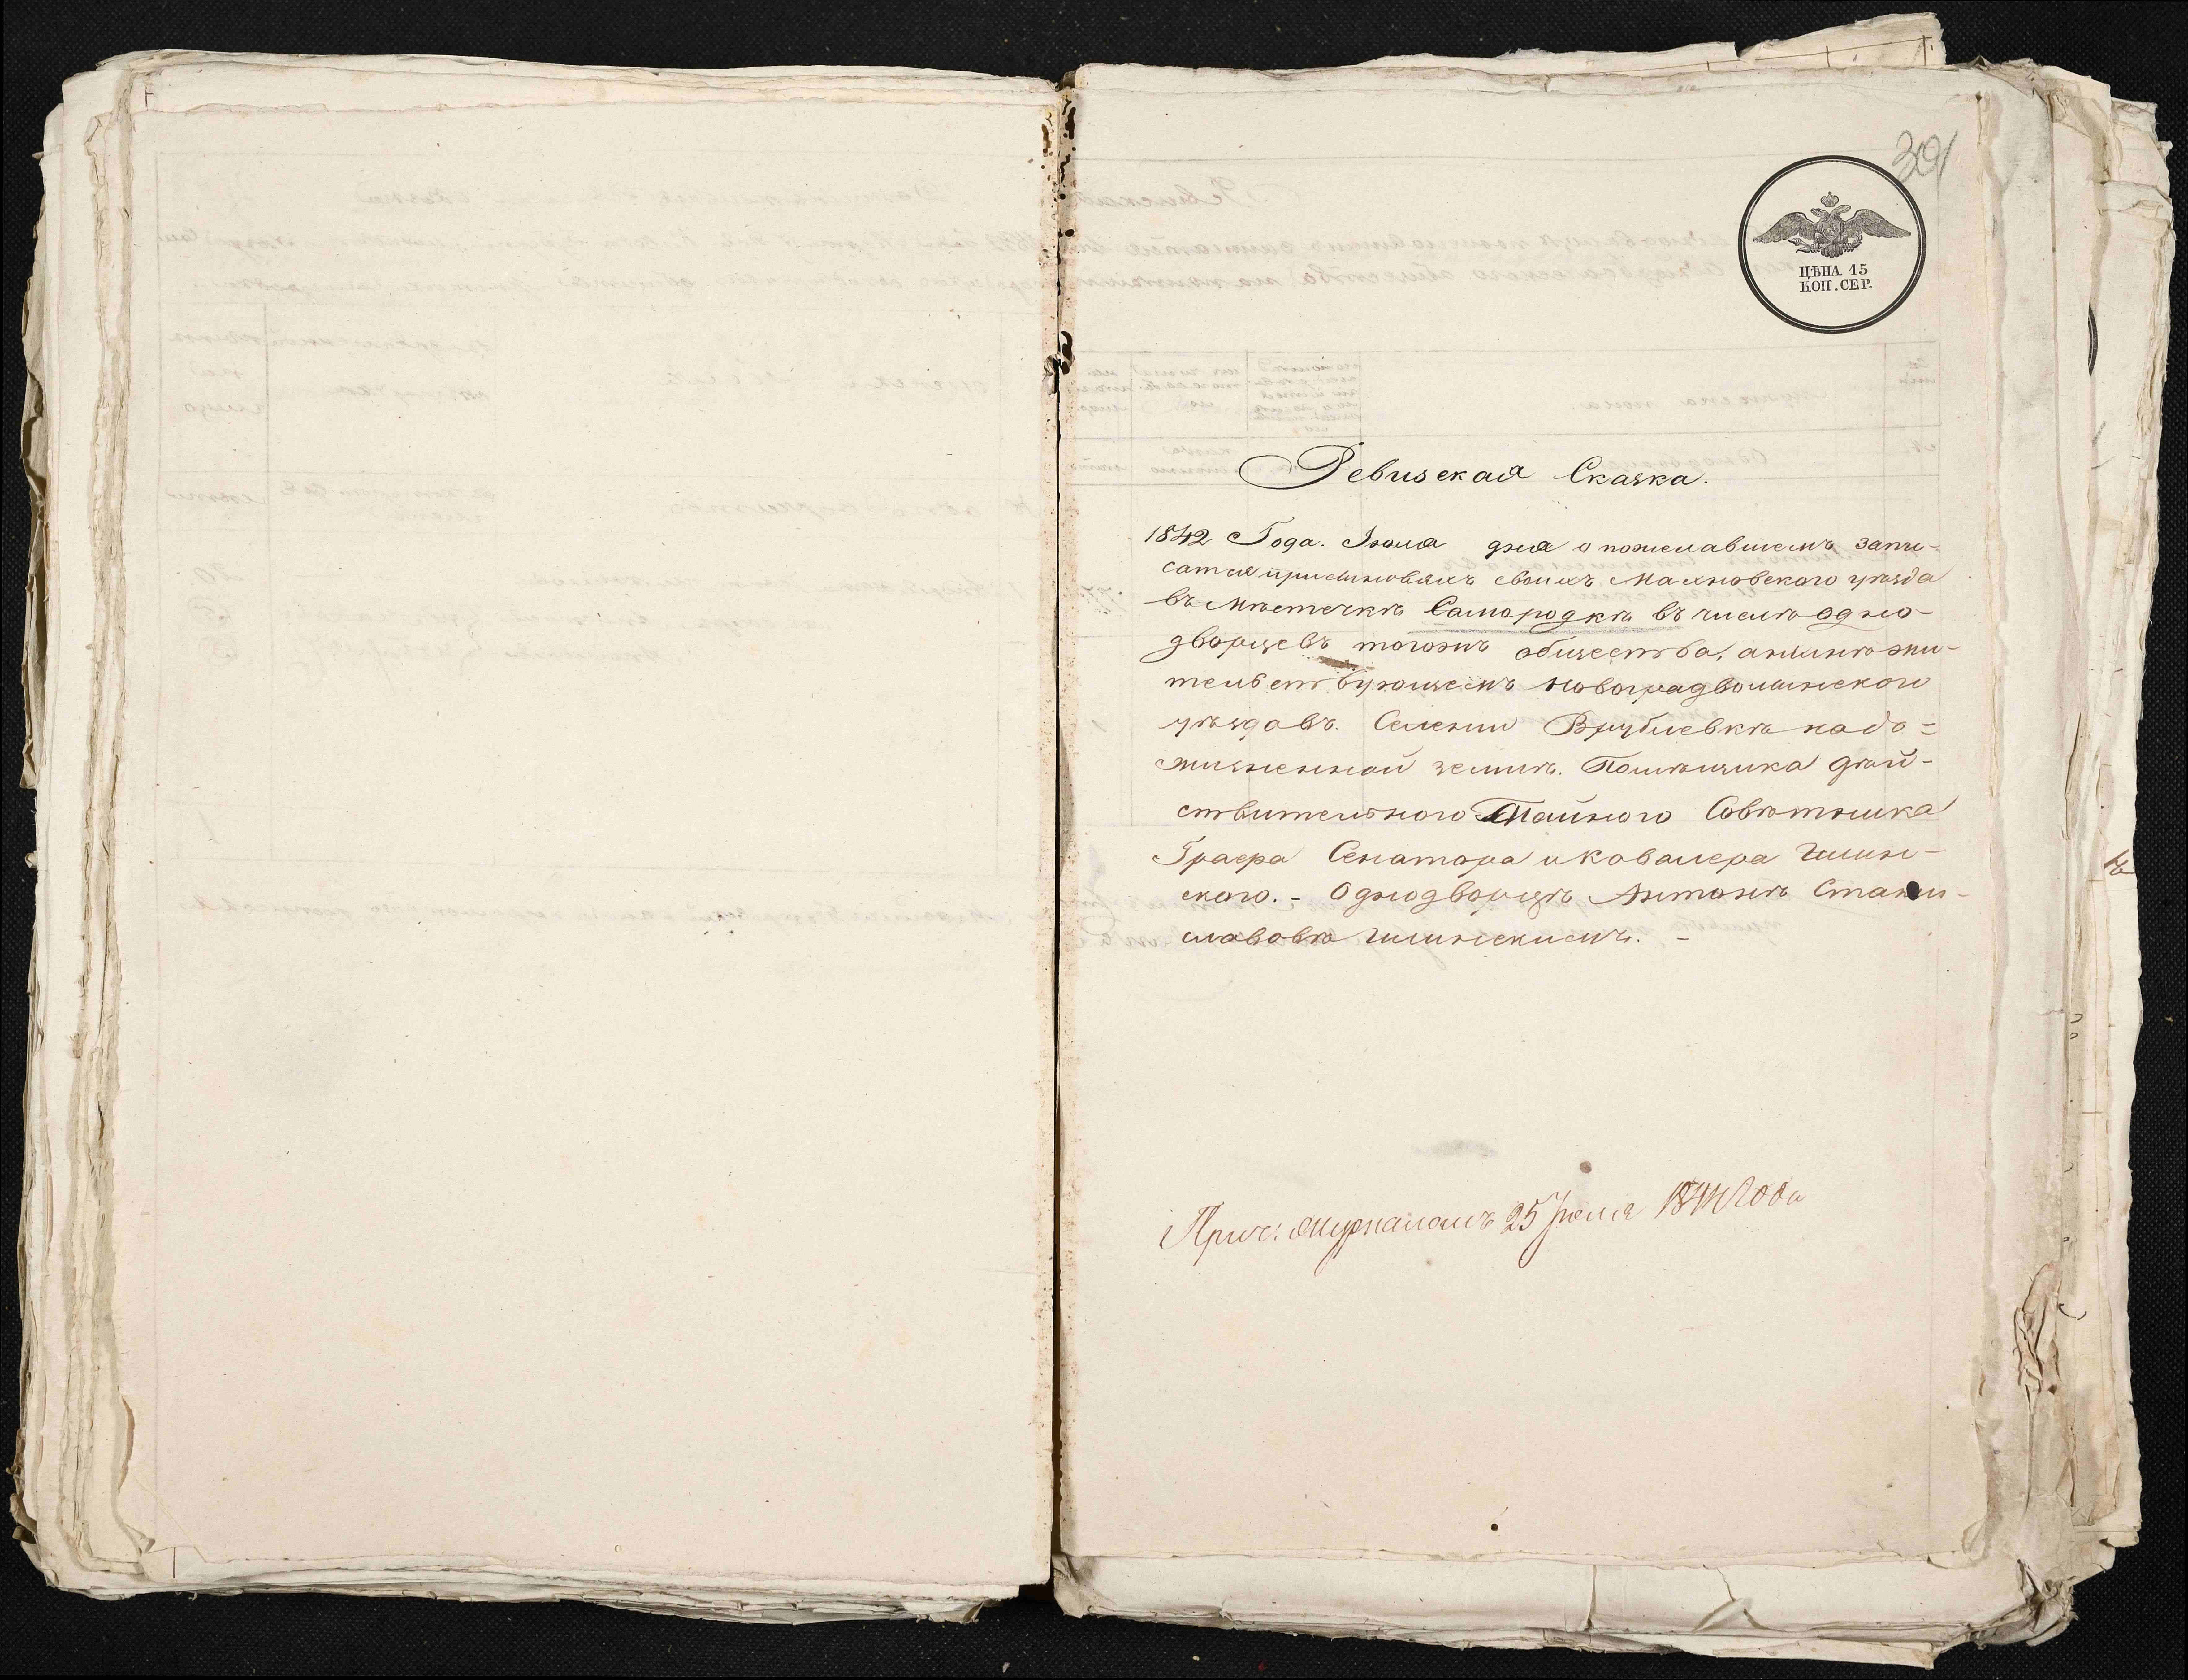 301
ЦѢНА 15
КОП. СЕР.
Ревизская Сказка.
1842 Года. Июля дня о пожелавшемъ запи-
сатся при сыновьяхъ своихъ Махновского уѣзда
въ Мѣстечкѣ Самородкѣ въ число одно-
дворцевъ тогожъ общества, а нынѣ жи-
тельствующемъ Новоградволынского
уѣзда въ Селении Врублевкѣ на
земли. Помѣщика дѣй-
ствительного Тайного Совѣтника
Графа Сенатора и Ковалера Илин-
ского. - Однодворцѣ Антонѣ Стани-
славовѣ Илинскиемъ. -
Прич: журналомъ 25 Июля Года